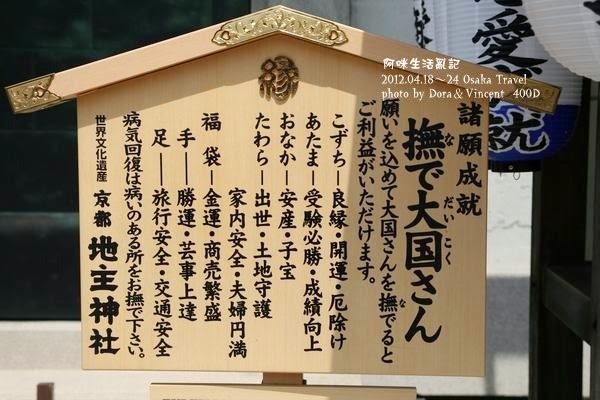 阿咪生活亂記
2012.04.18～24 Osaka Travel
photo by Dora & Vincent 400D
縁
諸願成就
撫で大国さん
な だいこく
願いを込めて大国さんを撫でると
な
ご利益がいただけます。
こずち―良縁・開運・厄除け
あたま―受験必勝・成績向上
おなか―安産・子宝
たわら―出世・土地守護
家内安全・夫婦円満
福袋―金運・商売繁盛
手―勝運・芸事上達
足―旅行安全・交通安全
病気回復は病いのある所をお撫で下さい。
世界文化遺産 京都 地主神社
愛
就